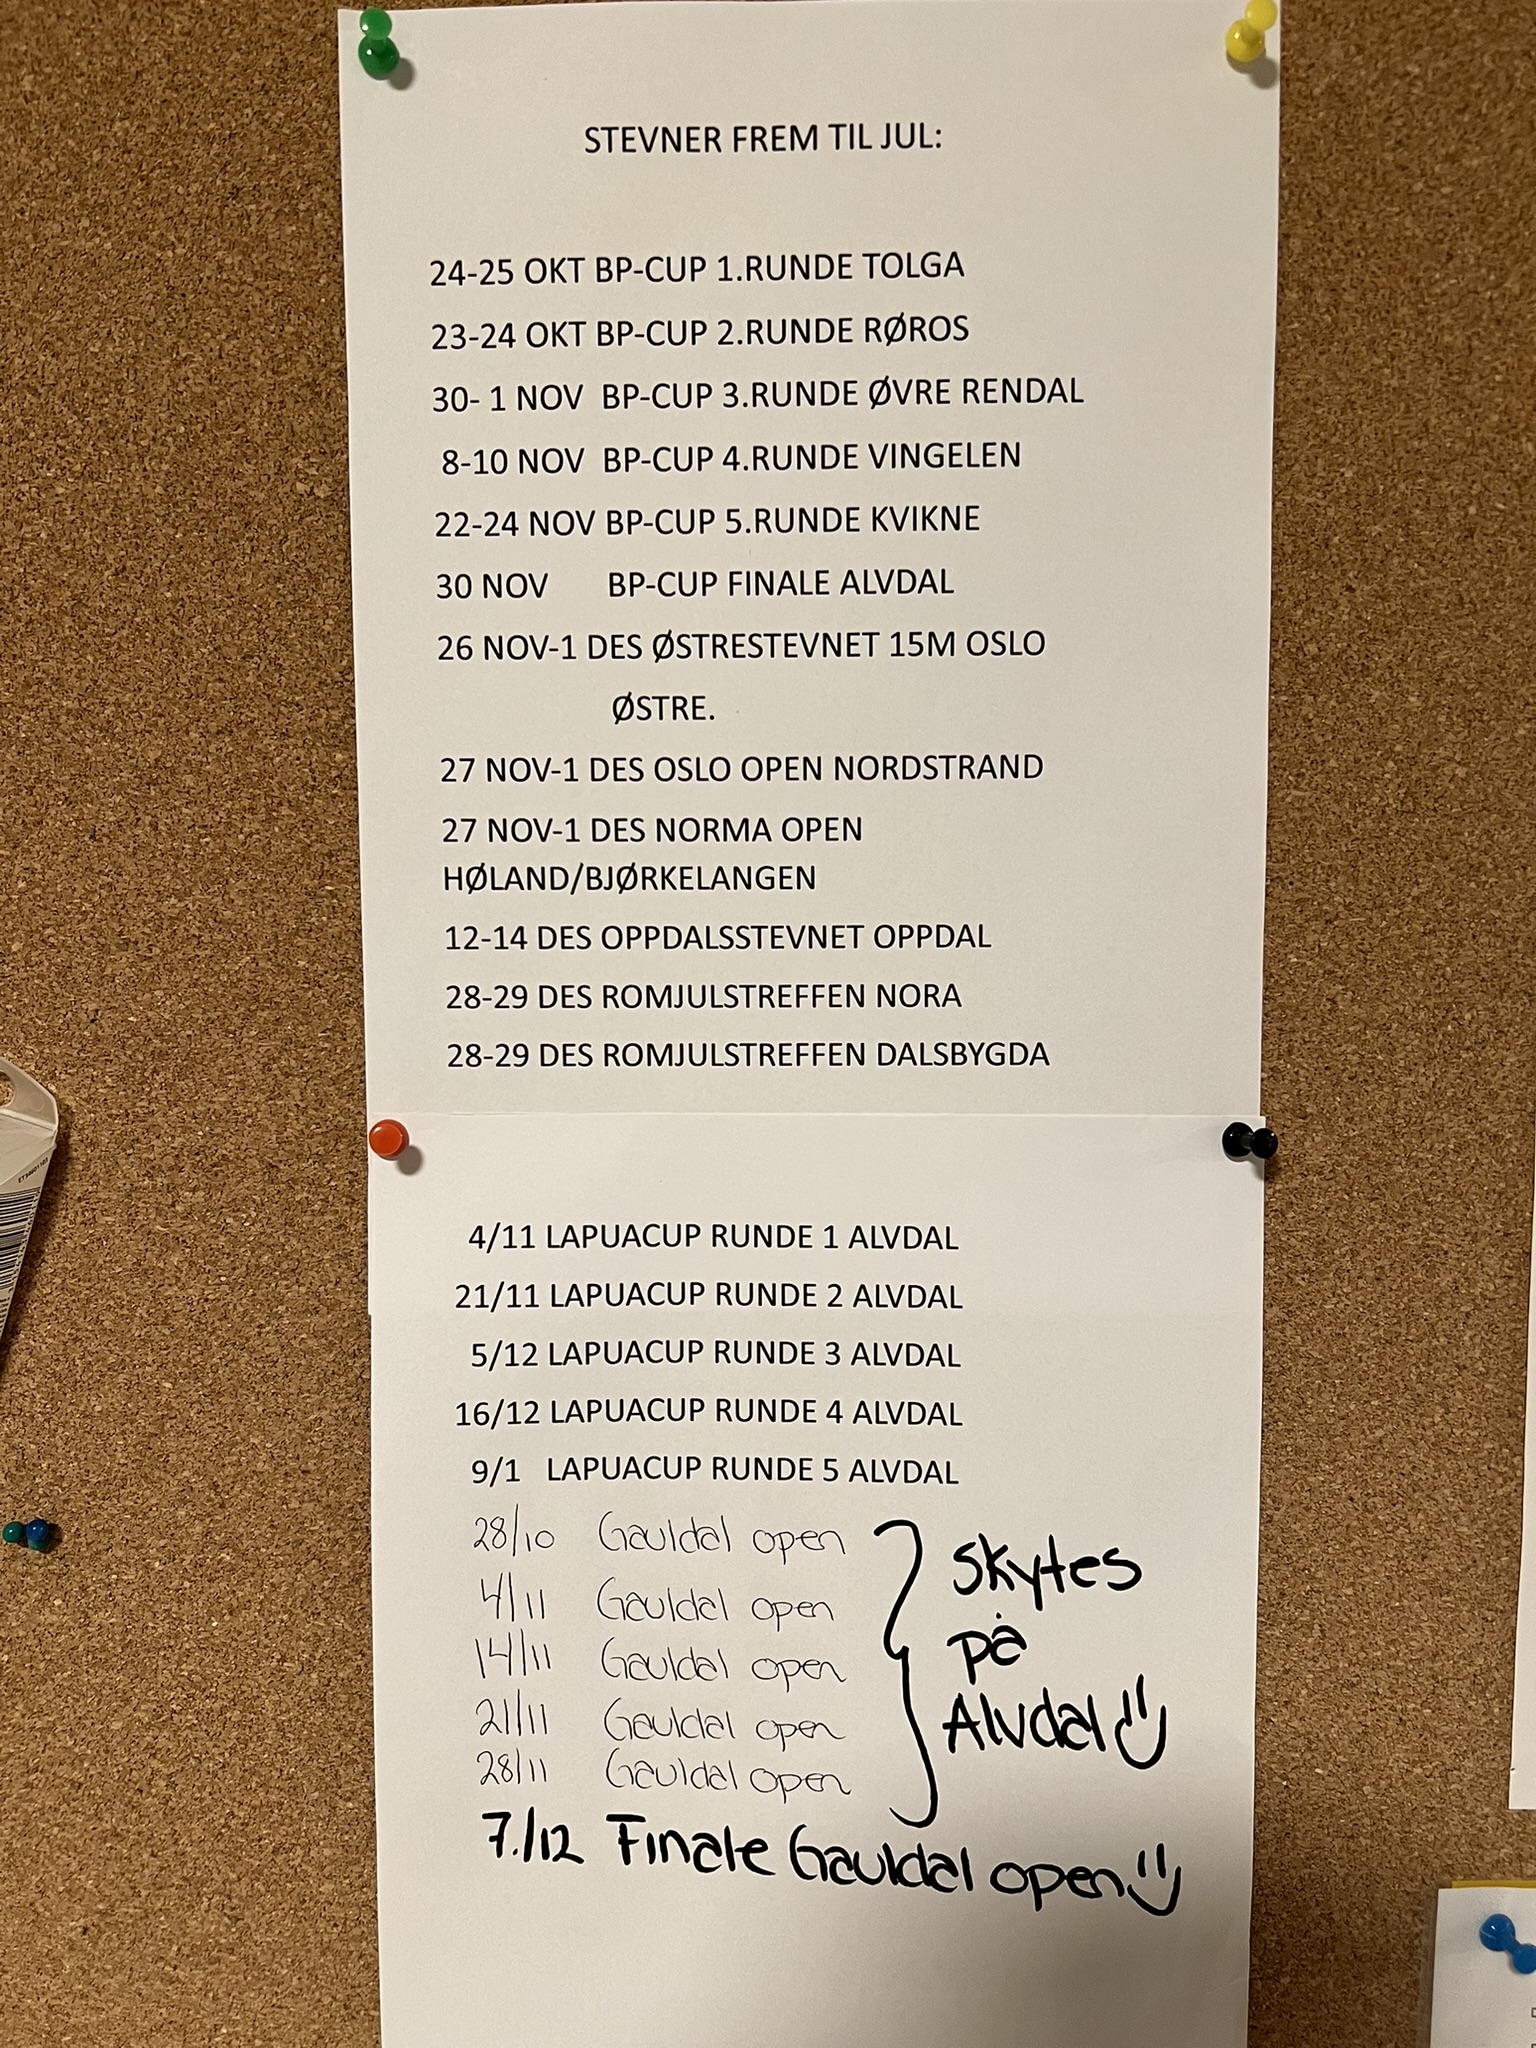 STEVNER FREM TIL JUL:
24-25 OKT BP-CUP 1.RUNDE TOLGA
23-24 OKT BP-CUP 2.RUNDE RØROS
30- 1 NOV BP-CUP 3.RUNDE ØVRE RENDAL
8-10 NOV BP-CUP 4.RUNDE VINGELEN
22-24 NOV BP-CUP 5.RUNDE KVIKNE
30 NOV BP-CUP FINALE ALVDAL
26 NOV-1 DES ØSTRESTEVNET 15M OSLO
ØSTRE.
27 NOV-1 DES OSLO OPEN NORDSTRAND
27 NOV-1 DES NORMA OPEN
HØLAND/BJØRKELANGEN
12-14 DES OPPDALSSTEVNET OPPDAL
28-29 DES ROMJULSTREFFEN NORA
28-29 DES ROMJULSTREFFEN DALSBYGDA
4/11 LAPUACUP RUNDE 1 ALVDAL
21/11 LAPUACUP RUNDE 2 ALVDAL
5/12 LAPUACUP RUNDE 3 ALVDAL
16/12 LAPUACUP RUNDE 4 ALVDAL
9/1 LAPUACUP RUNDE 5 ALVDAL
28/10 Gauldal open
4/11 Gauldal open
14/11 Gauldal open
21/11 Gauldal open
28/11 Gauldal open
Skytes
på
Alvdal
7./12 Finale Gauldal open